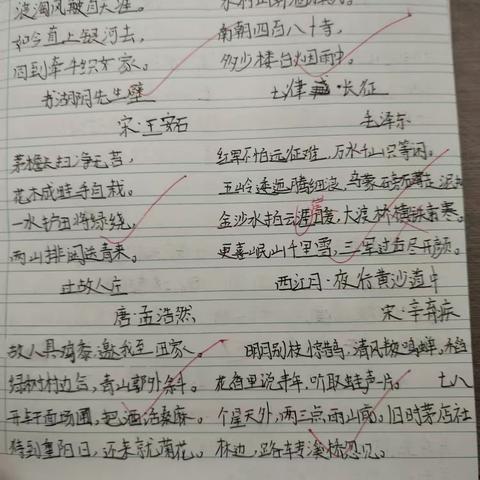 浪淘风簸自天涯。
如今直上银河去,
同到牵牛织女家。
书湖阴先生壁
宋:王安石
茅檐长扫净无苔,
花木成畦手自栽。
一水护田将绿绕,
两山排闼送青来。
过故人庄
唐:孟浩然
故人具鸡黍,邀我至田家。
绿树村边合,青山郭外斜。
开轩面场圃,把酒话桑麻。
待到重阳日,还来就菊花。
南朝四百八十寺,
多少楼台烟雨中。
七律·长征
毛泽东
红军不怕远征难,万水千山只等闲。
五岭逶迤腾细浪,乌蒙磅礴走泥丸
金沙水拍云崖暖,大渡桥横铁索寒。
更喜岷山千里雪,三军过后尽开颜。
西江月·夜行黄沙道中
宋:辛弃疾
明月别枝惊鹊,清风半夜鸣蝉。稻
花香里说丰年,听取蛙声一片。 七八
个星天外,两三点雨山前。旧时茅店社
林边,路转溪桥忽见。